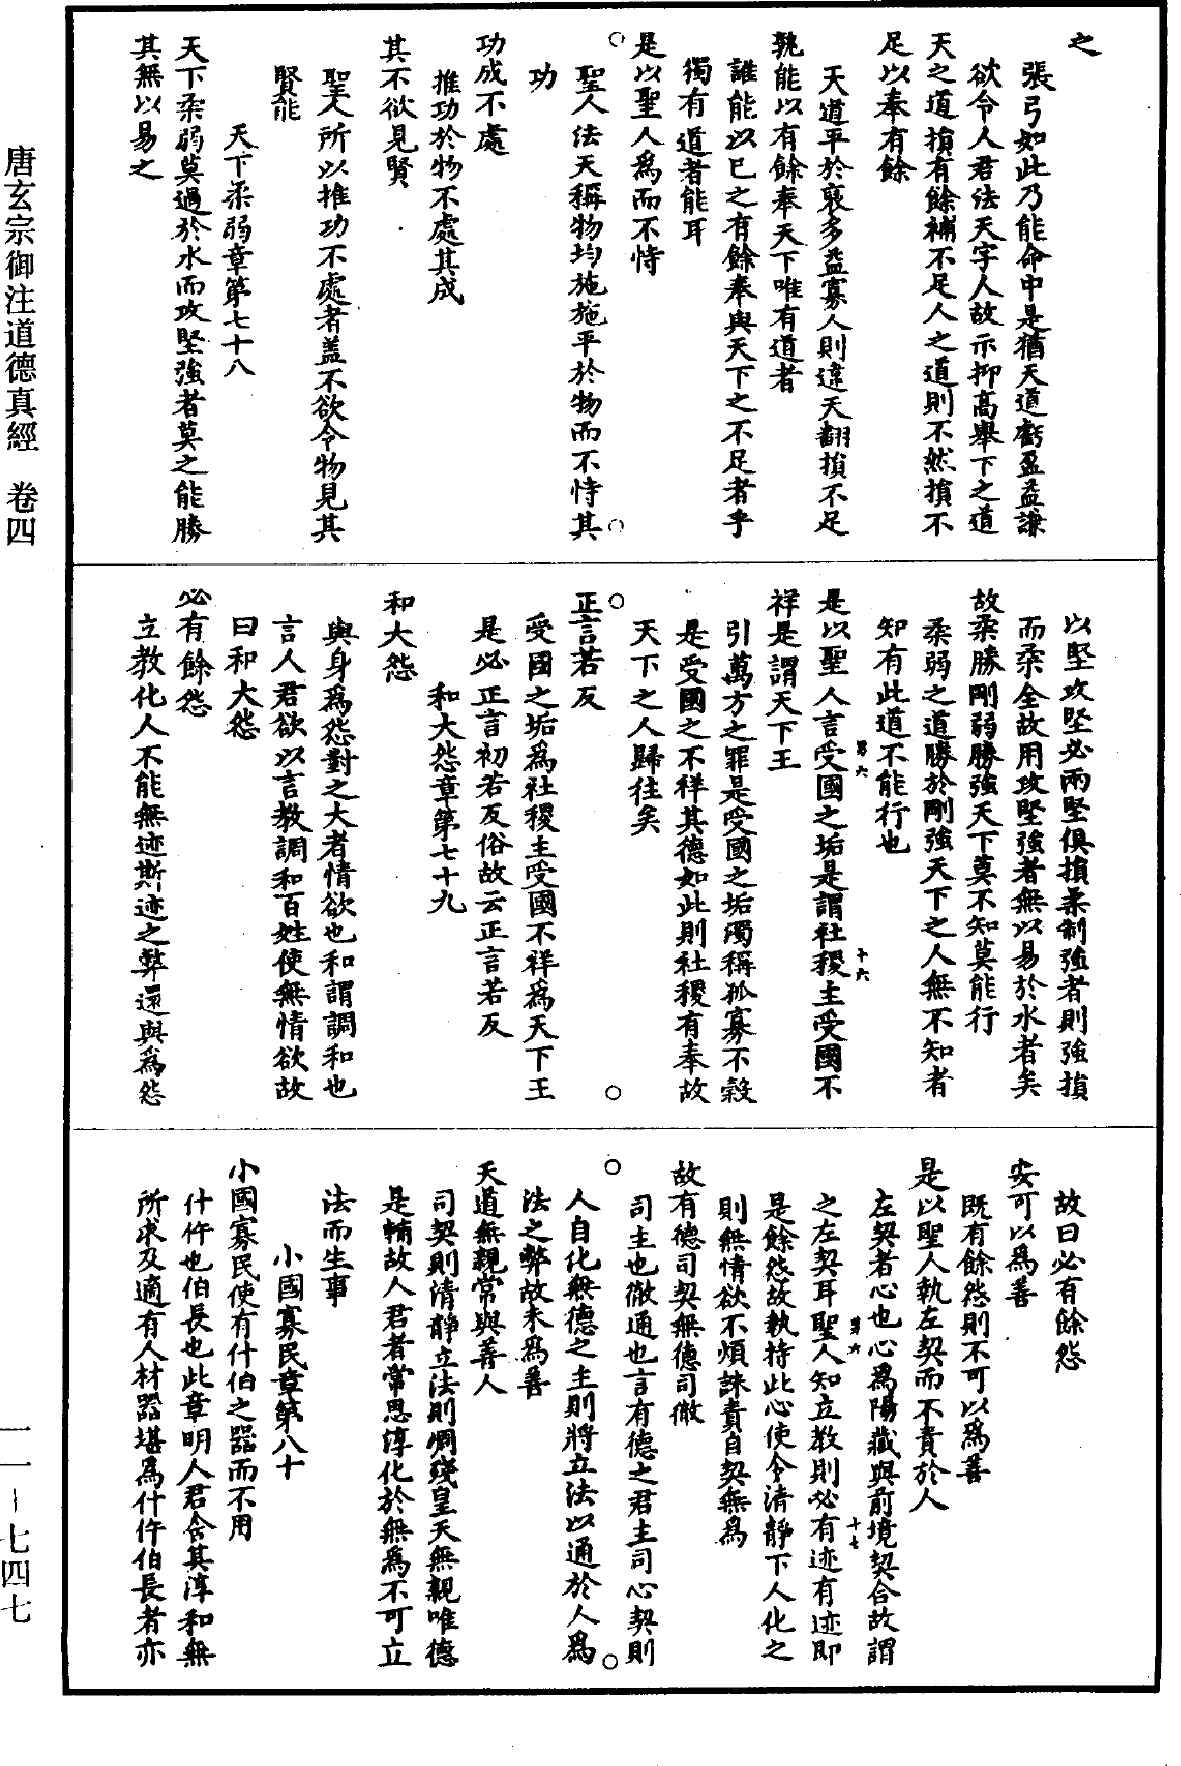 之
張弓如此乃能命中是猶天道虧盈益謙
欲令人君法天字人故示抑高舉下之道
天之道損有餘補不足人之道則不然損不
足以奉有餘
天道平於裒多益寡人則違天翻損不足
孰能以有餘奉天下唯有道者
誰能以已之有餘奉與天下之不足者乎
獨有道者能耳
是以聖人爲而不恃
聖人法天稱物均施施平於物而不恃其
功
功成不處
推功於物不處其成
其不欲見賢
聖人所以推功不處者蓋不欲令物見其
賢能
天下柔弱章第七十八
天下柔弱莫過於水而攻堅強者莫之能勝
其無以易之
以堅攻堅必兩堅俱損柔制強者則強損
而柔全故用攻堅強者無以易於水者矣
故柔勝剛弱勝強天下莫不知莫能行
柔弱之道勝於剛強天下之人無不知者
知有此道不能行也
第六 十六
是以聖人言受國之垢是謂社稷主受國不
祥是謂天下王
引萬方之罪是受國之垢濁稱孤寡不穀
是受國之不祥其德如此則社稷有奉故
天下之人歸往矣
正言若反
受國之垢爲社稷主受國不祥爲天下王
是必正言初若反俗故云正言若反
和大怨章第七十九
和大怨
與身爲怨對之大者情欲也和謂調和也
言人君欲以言教調和百姓使無情欲故
曰和大怨
必有餘怨
立教化人不能無迹斯迹之弊還與爲怨
故曰必有餘怨
安可以爲善
既有餘怨則不可以爲善
是以聖人執左契而不責於人
左契者心也心爲陽藏與前境契合故謂
第六 十七
之左契耳聖人知立教則必有迹有迹即
是餘怨故執持此心使令清靜下人化之
則無情欲不煩誅責自契無爲
故有德司契無德司徹
司主也徹通也言有德之君主司心契則
人自化無德之主則將立法以通於人爲
法之弊故未爲善
天道無親常與善人
司契則清靜立法則凋殘皇天無親唯德
是輔故人君者常思淳化於無爲不可立
法而生事
小國寡民章第八十
小國寡民使有什伯之器而不用
什仵也伯長也此章明人君含其淳和無
所求及適有人材器堪爲什仵伯長者亦
唐玄宗御注道德真經 卷四
一一-七四七